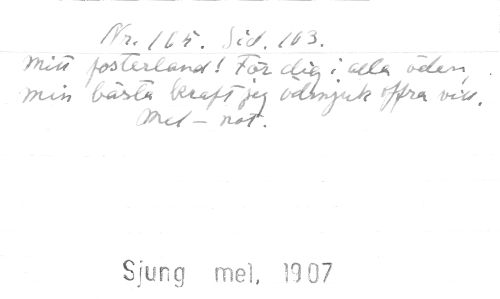 Nr. 165. Sid. 163.
Mitt fosterland! För dig i alla öden,
min bästa kraft jag ödmjuk offra vill.
Mel – not.
Sjung mel, 1907